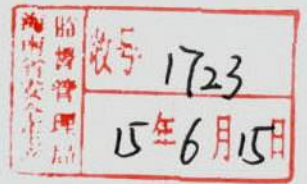 海南省安全生产
监督管理局
收号 1723
15年6月15日